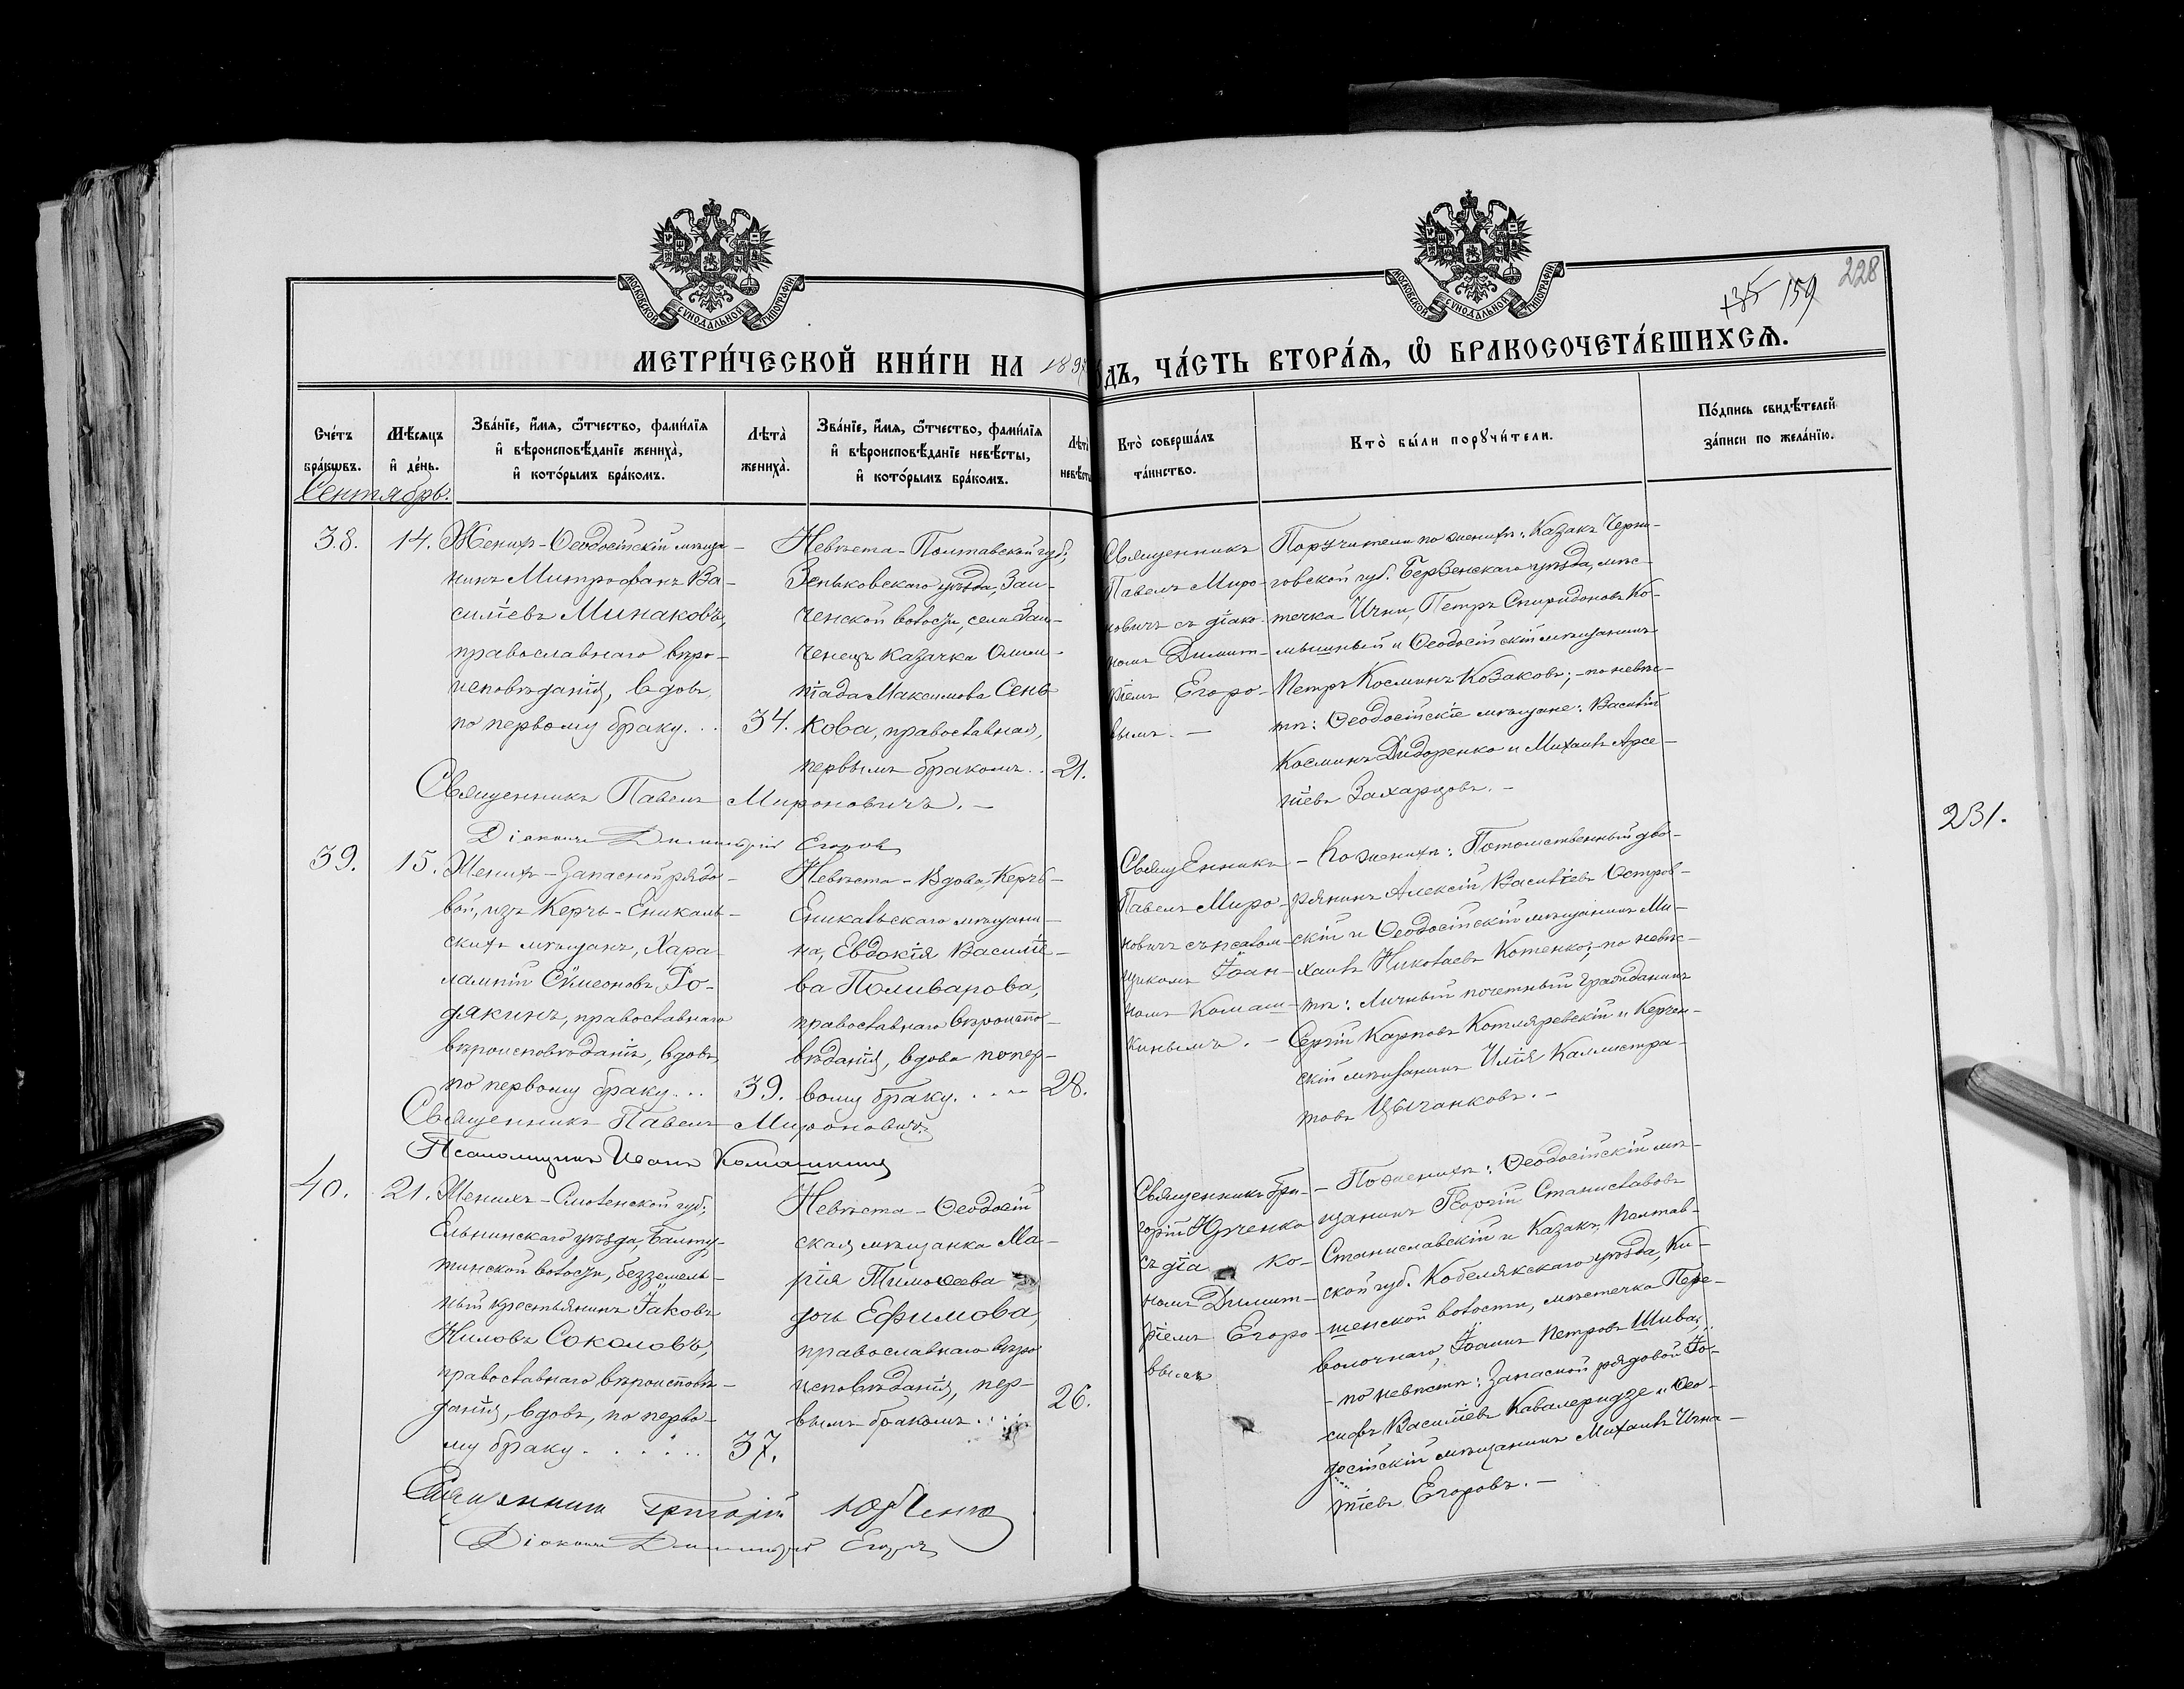 МОСКОВСКОЙ СѴНОДАЛЬНОЙ ТИПОГРАФІИ
МОСКОВСКОЙ СѴНОДАЛЬНОЙ ТИПОГРАФІИ
135 159 228
МЕТРИ́ЧЕСКОЙ КНИ́ГИ НА 189
ДЪ, ЧА́СТЬ ВТОРА́Ѧ, Ѡ҆ БРАКОСОЧЕТА́ВШИХСѦ.
Сче́тъ бра́кѡвъ.
Мѣ́сѧцъ и҆ де́нь.
Зва́нїе, и҆́мѧ, ѻ҆́тчество, фами́лїѧ
и҆ вѣроисповѣ́данїе жениха̀,
и҆ кото́рымъ бра́комъ.
Лѣта̀ жениха̀.
Зва́нїе, и҆́мѧ, ѻ҆́тчество, фами́лїѧ
и҆ вѣроисповѣ́данїе невѣ́сты,
и҆ кото́рымъ бра́комъ.
Лѣта̀ невѣ́сты
Кто̀ соверша́лъ та́инство.
Кто̀ бы́ли порꙋчи́тели.
По́дпись свидѣ́телей за́писи по жела́нїю.
Сентябрь.
38.
14.
Женихъ - Ѳеодосійскій мѣща-
нинъ Митрофанъ Ва-
силіевъ Минаковъ,
православнаго вѣро-
исповѣданія, вдовъ
по первому браку...
34.
Невѣста - Полтавской губ.,
Зеньковскаго уѣзда, Заи-
ченской волости, села Заи-
ченецъ казачка Олим-
піада Максимова Сень
кова, православная,
первымъ бракомъ..
21.
Священникъ
Павелъ Миро-
новичъ съ діако-
номъ Димит-
ріемъ Егоро-
вымъ. -
Поручители по женихѣ: Казакъ Черни-
говской губ. Борзенскаго уѣзда, мѣс-
течка Ични, Петръ Спиридоновъ Ко-
и Ѳеодосійскій мѣщанинъ
Петръ Косминъ Козаковъ; - по невѣс-
тѣ: Ѳеодосійскіе мѣщане: Василій
Косминъ Дидоренко и Михаилъ Арсе-
ніевъ Захарцовъ. -
Священникъ Павелъ Мироновичъ. -
Діаконъ Димитрій Егоровъ
231.
39.
15.
Женихъ - Запасной рядо-
вой, изъ Керчь-Еникаль-
скихъ мѣщанъ, Хара-
лампій Сѵмеоновъ Го-
дякинъ, православнаго
вѣроисповѣданія, вдовъ
по первому браку...
39.
Невѣста - Вдова Керчь-
Еникальскаго мѣщани-
на, Евдокія Василіе-
ва Поливарова,
православнаго вѣроиспо-
вѣданія, вдова по пер-
вому браку....
28.
Священникъ
Павелъ Миро-
новичъ съ псалом-
щикомъ Іоан-
номъ Комаш-
кинымъ. -
- По женихѣ: Потомственный дво-
рянинъ Алексій Василіевъ Остров-
скій и Ѳеодосійскій мѣщанинъ Ми-
хаилъ Николаевъ Котенко; - по невѣс-
тѣ: Личный почетный гражданинъ
Сергій Карповъ Котляревскій и Керчен-
скій мѣщанинъ Илія Каллистра-
товъ Цыганковъ. -
Священникъ Павелъ Мироновичъ
Псаломщикъ Іоанъ Комашкинъ
40.
21.
Женихъ - Смоленской губ.,
Ельнинскаго уѣзда, Балту-
тинской волости, безземель-
ный крестьянинъ Іаковъ
Ниловъ Соколовъ,
православнаго вѣроисповѣ-
данія, вдовъ, по перво-
му браку......
37.
Невѣста - Ѳеодосій
ская мѣщанка Ма-
рія Тимоѳеева
дочь Ефимова,
православнаго вѣро
исповѣданія, пер-
вымъ бракомъ....
26.
Священникъ Гри-
горій Юрченко
съ діако-
номъ Димит-
ріемъ Егоро-
вымъ
- По женихѣ: Ѳеодосійскій мѣ-
щанинъ Георгій Станиславовъ
Станиславскій и Казакъ, Полтав-
ской губ. Кобелякскаго уѣзда, Ки-
шенской волости, мѣстечка Пере-
волочнаго, Іоаннъ Петровъ Шива;
- по невѣстѣ: Запасной рядовой Іо-
сифъ Василіевъ Кавалеридзе и Ѳео-
досійскій мѣщанинъ Михаилъ Игна-
тіевъ Егоровъ. -
Священникъ Григорій Юрченко
Діаконъ Димитрій Егоровъ